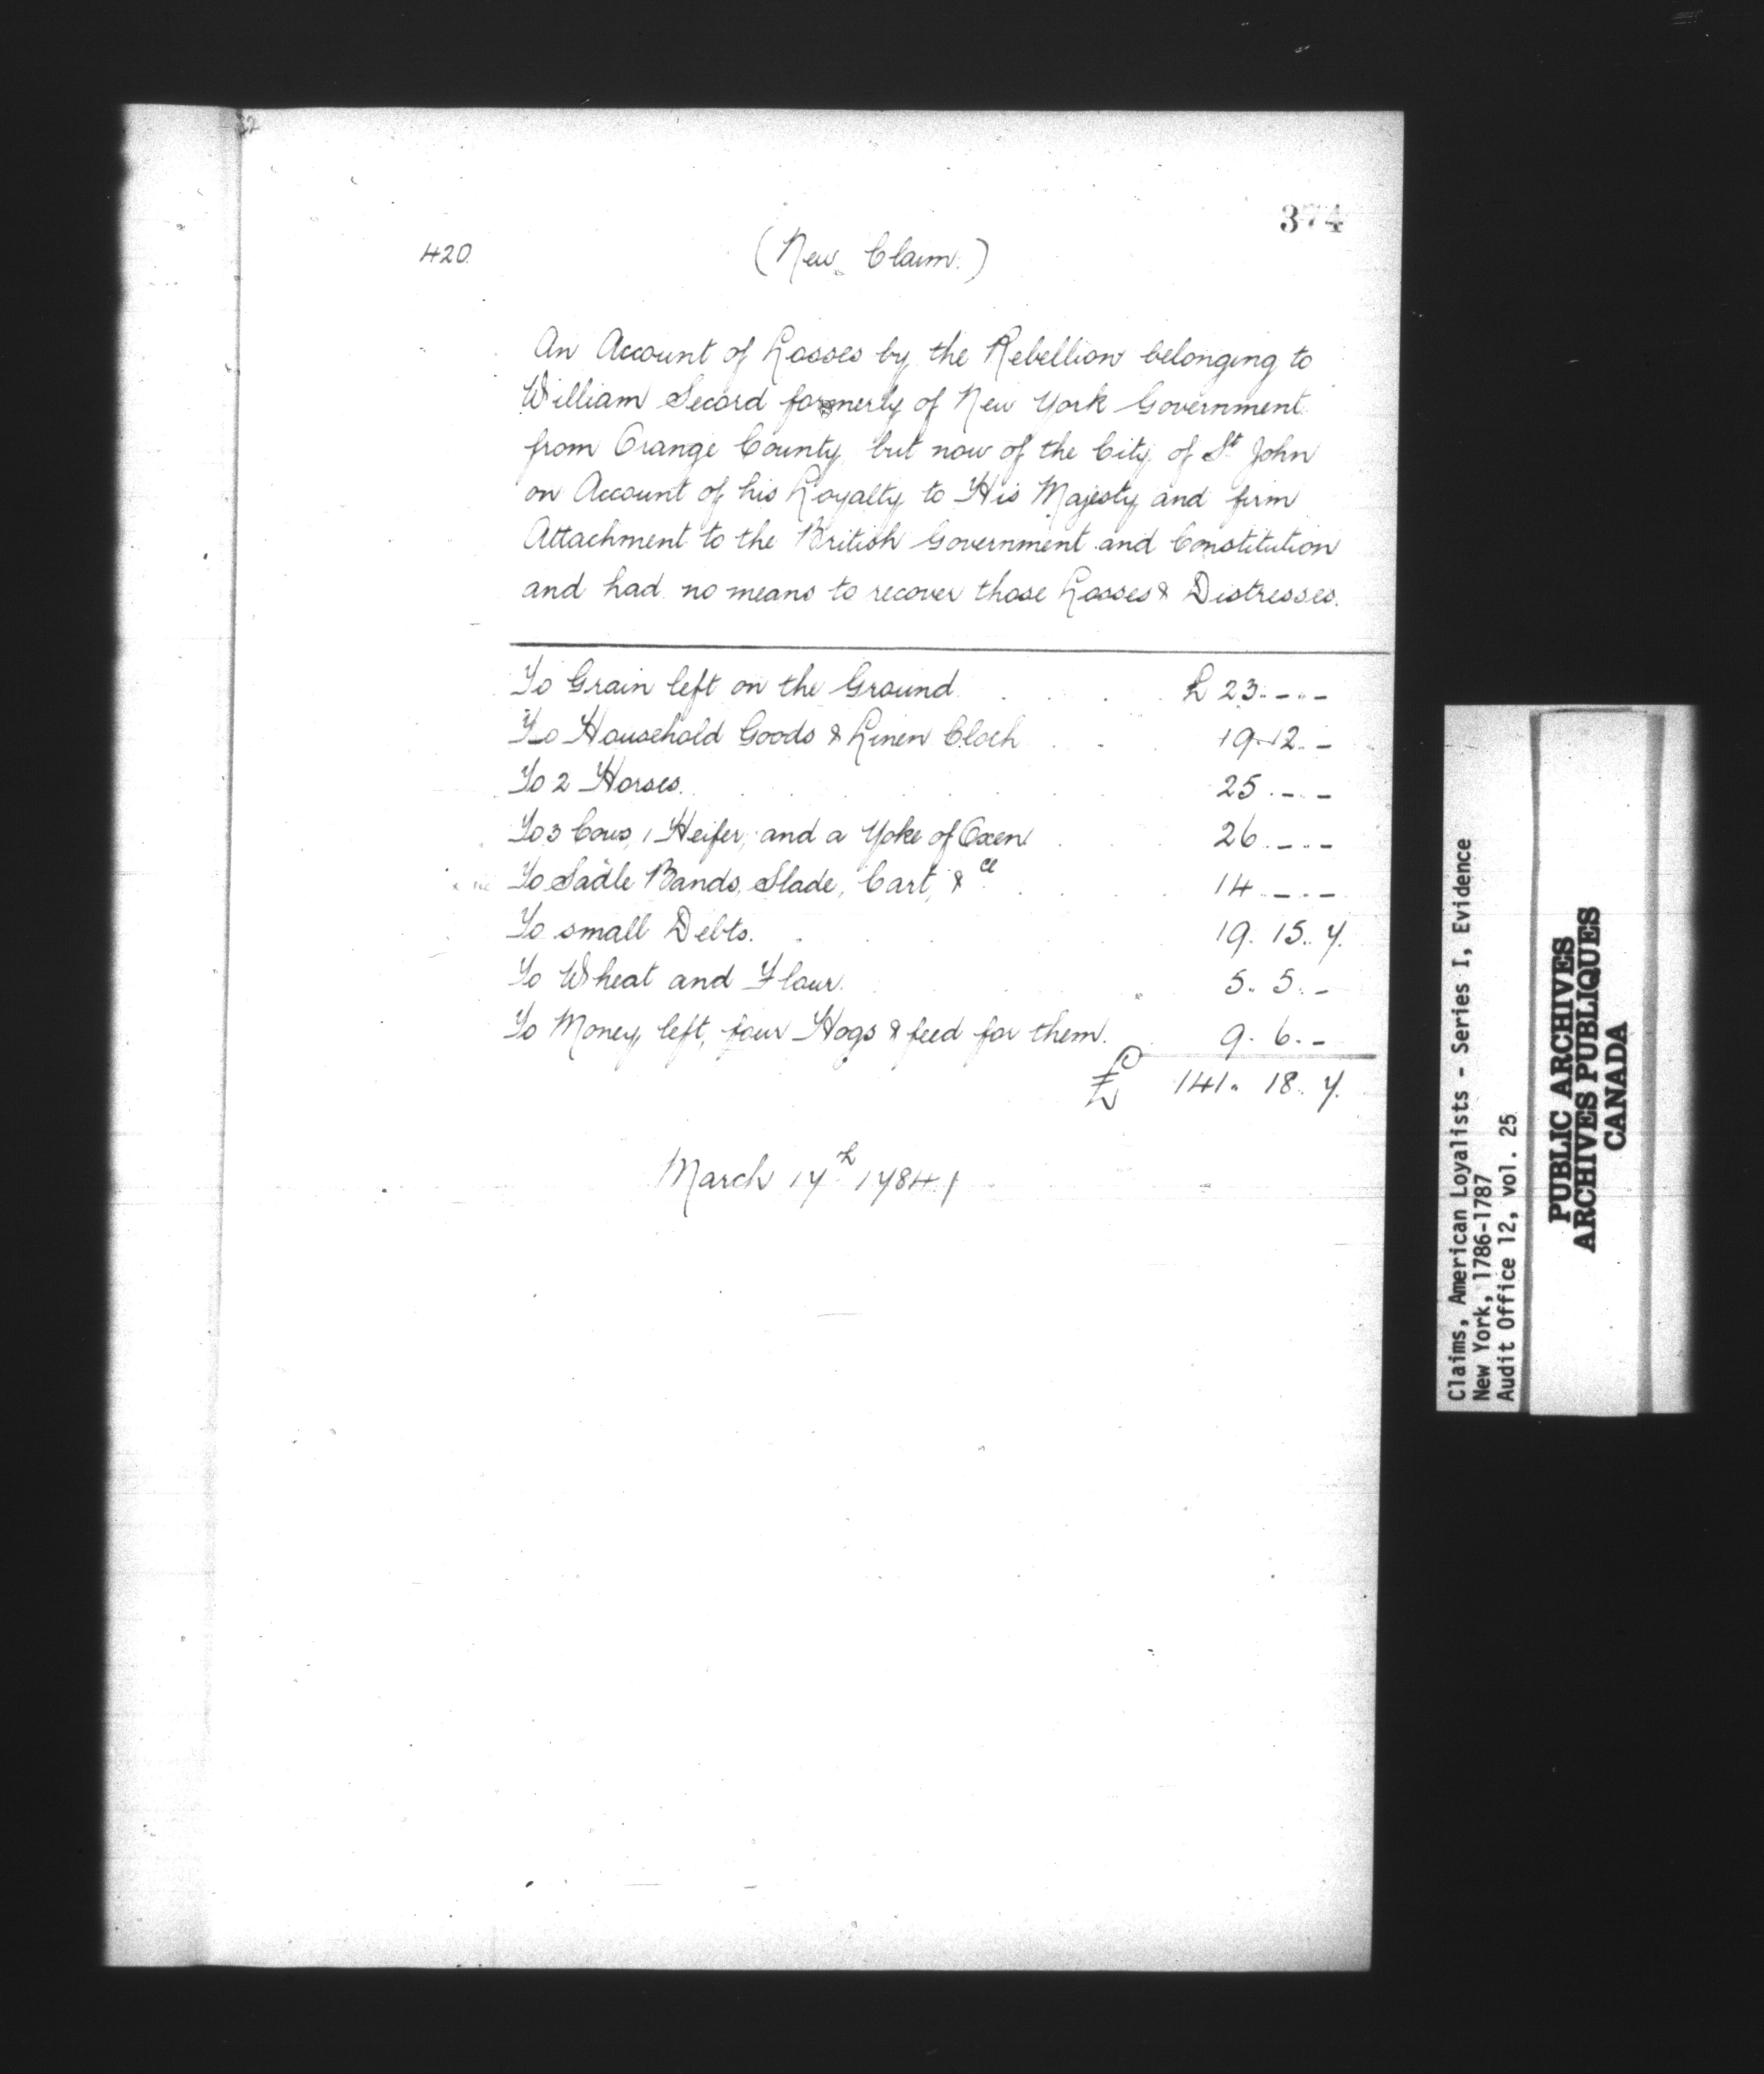 374
420.
(New Claim.)
An Account of Losses by the Rebellion belonging to
William Secord formerly of New York Government
from Orange County but now of the City of St John
on Account of his Loyalty to His Majesty and firm
Attachment to the British Government and Constitution
and had no means to recover those Losses & Distresses.
To Grain left on the Ground . . . £ 23.-.-
To Household Goods & Linen Cloth . . 19.12.-
To 2 Horses. . . . 25.-.-
To 3 Cows, 1 Heifer, and a Yoke of Oxen . . 26.-.-
To Sadle Bands, Slade, Cart, &ce . . 14.-.-
To small Debts. . . . 19.15.7.
To Wheat and Flour. . . . 5.5.-
To Money left, four Hogs & feed for them. . 9.6.-
£ 141.18.7.
March 17th 1784
Claims, American Loyalists - Series I, Evidence
New York, 1786-1787
Audit Office 12, vol. 25
PUBLIC ARCHIVES
ARCHIVES PUBLIQUES
CANADA